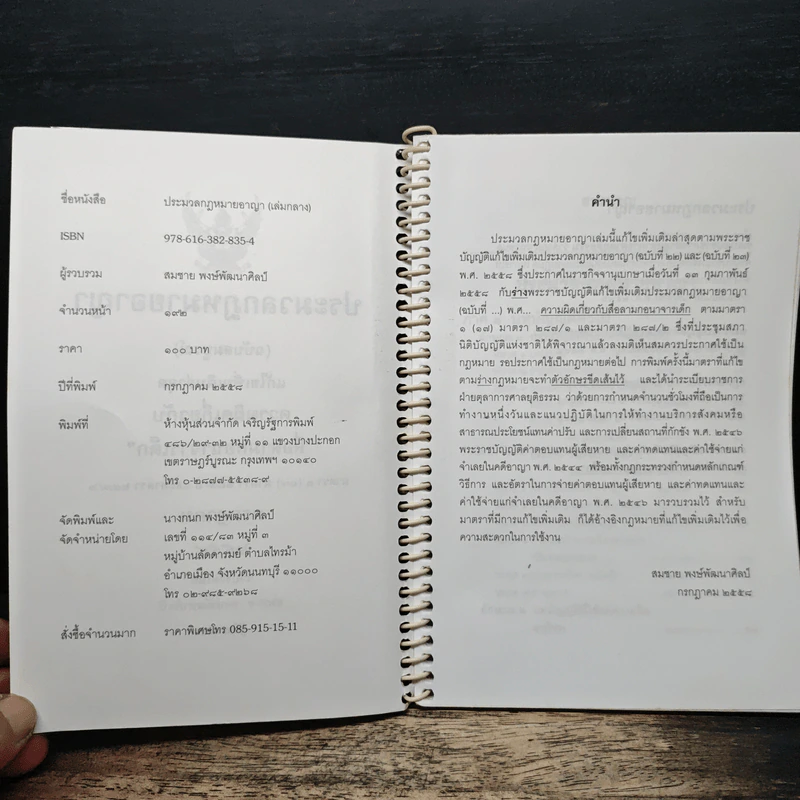 ชื่อหนังสือ ประมวลกฎหมายอาญา (เล่มกลาง)
ISBN 978-616-382-835-4
ผู้รวบรวม สมชาย พงษ์พัฒนาศิลป์
จำนวนหน้า ๑๙๒
ราคา ๑๐๐ บาท
ปีที่พิมพ์ กรกฎาคม ๒๕๕๘
พิมพ์ที่ ห้างหุ้นส่วนจำกัด เจริญรัฐการพิมพ์
๔๘๖/๒๙-๓๒ หมู่ที่ ๑๑ แขวงบางปะกอก
เขตราษฎร์บูรณะ กรุงเทพฯ ๑๐๑๔๐
โทร ๐-๒๘๗๗-๕๕๓๘-๙
จัดพิมพ์และ นางกนก พงษ์พัฒนาศิลป์
จัดจำหน่ายโดย เลขที่ ๑๑๔/๘๓ หมู่ที่ ๓
หมู่บ้านลัดดารมย์ ตำบลไทรม้า
อำเภอเมือง จังหวัดนนทบุรี ๑๑๐๐๐
โทร ๐๒-๙๘๕-๙๒๖๘
สั่งซื้อจำนวนมาก ราคาพิเศษโทร 085-915-15-11
คำนำ
ประมวลกฎหมายอาญาเล่มนี้แก้ไขเพิ่มเติมล่าสุดตามพระราช
บัญญัติแก้ไขเพิ่มเติมประมวลกฎหมายอาญา (ฉบับที่ ๒๒) และ (ฉบับที่ ๒๓)
พ.ศ. ๒๕๕๘ ซึ่งประกาศในราชกิจจานุเบกษาเมื่อวันที่ ๑๓ กุมภาพันธ์
๒๕๕๘ กับร่างพระราชบัญญัติแก้ไขเพิ่มเติมประมวลกฎหมายอาญา
(ฉบับที่ ...) พ.ศ... ความผิดเกี่ยวกับสื่อลามกอนาจารเด็ก ตามมาตรา
๑ (๑๗) มาตรา ๒๘๗/๑ และมาตรา ๒๘๗/๒ ซึ่งที่ประชุมสภา
นิติบัญญัติแห่งชาติได้พิจารณาแล้วลงมติเห็นสมควรประกาศใช้เป็น
กฎหมาย รอประกาศใช้เป็นกฎหมายต่อไป การพิมพ์ครั้งนี้มาตราที่แก้ไข
ตามร่างกฎหมายจะทำตัวอักษรขีดเส้นไว้ และได้นำระเบียบราชการ
ฝ่ายตุลาการศาลยุติธรรม ว่าด้วยการกำหนดจำนวนชั่วโมงที่ถือเป็นการ
ทำงานหนึ่งวันและแนวปฏิบัติในการให้ทำงานบริการสังคมหรือ
สาธารณประโยชน์แทนค่าปรับ และการเปลี่ยนสถานที่กักขัง พ.ศ. ๒๕๔๖
พระราชบัญญัติค่าตอบแทนผู้เสียหาย และค่าทดแทนและค่าใช้จ่ายแก่
จำเลยในคดีอาญา พ.ศ. ๒๕๔๔ พร้อมทั้งกฎกระทรวงกำหนดหลักเกณฑ์
วิธีการ และอัตราในการจ่ายค่าตอบแทนผู้เสียหาย และค่าทดแทนและ
ค่าใช้จ่ายแก่จำเลยในคดีอาญา พ.ศ. ๒๕๔๖ มารวบรวมไว้ สำหรับ
มาตราที่มีการแก้ไขเพิ่มเติม ก็ได้อ้างอิงกฎหมายที่แก้ไขเพิ่มเติมไว้เพื่อ
ความสะดวกในการใช้งาน
สมชาย พงษ์พัฒนาศิลป์
กรกฎาคม ๒๕๕๘